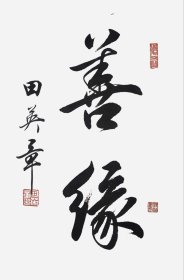 善缘
田英章